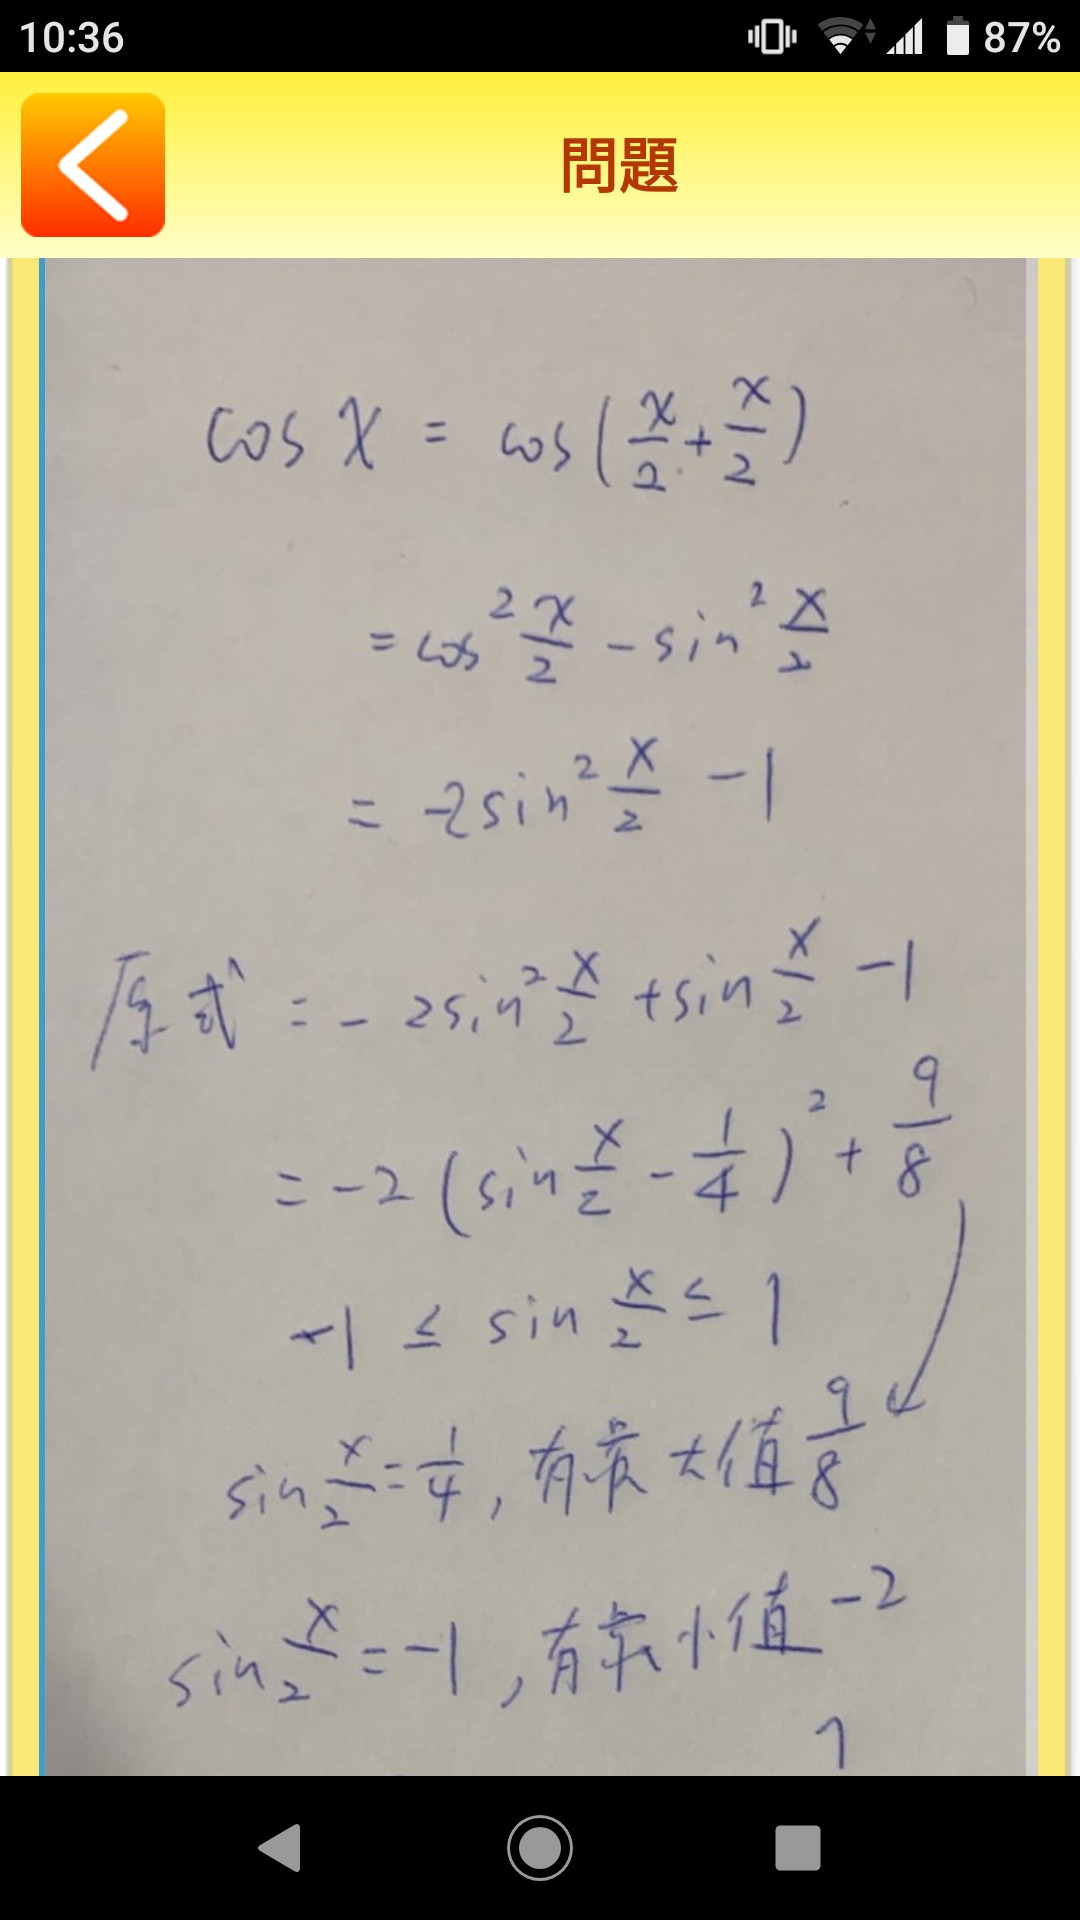 10:36 87%
問題
cos x = cos(x/2 + x/2)
= cos² x/2 - sin² x/2
= -2sin² x/2 - 1
原式 = - 2sin² x/2 + sin x/2 - 1
= -2 (sin x/2 - 1/4)² + 9/8
-1 ≤ sin x/2 ≤ 1
sin x/2 = 1/4 , 有最大值 9/8
sin x/2 = -1 , 有最小值 -2